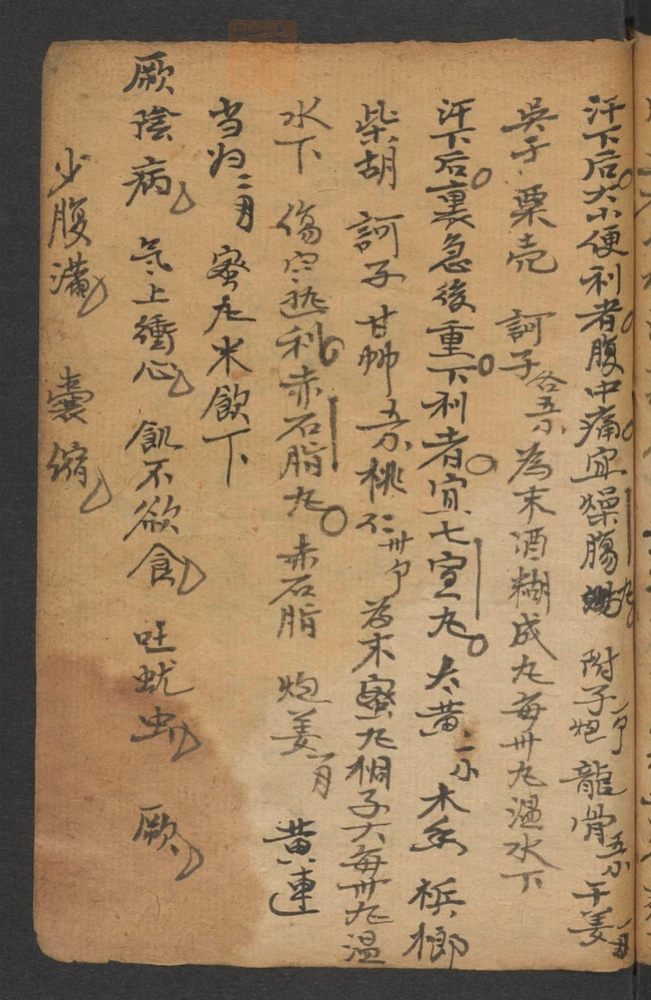 汗下后大小便利者腹中痛宜燥腸丸 附子炮 龍骨五小 干姜
吳子 粟壳 訶子各五小 為末酒糊成丸每卅丸温水下
汗下后裏急後重下利者宜七宣丸 大黄二小 木香 梹榔
柴胡 訶子 甘草 五小 桃仁 為末蜜丸桐子大每卅丸温
水下 傷寒热利赤石脂丸 赤石脂 炮姜 黄連
当归 蜜丸米飲下
厥陰病 氣上衝心 飢不欲食 吐蚘虫 厥
少腹滿 囊縮